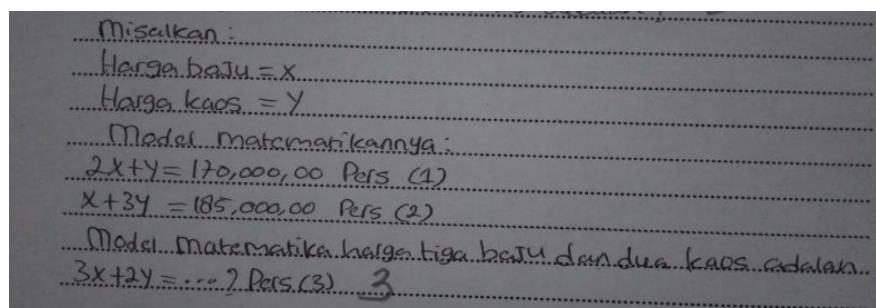 Misalkan :
Harga baju = x
Harga kaos = y
Model matematikannya :
2x+y = 170,000,00 Pers (1)
x + 3y = 185,000,00 Pers (2)
Model matematika harga tiga baju dan dua kaos adalah
3x+2y = ... ? Pers (3) 3